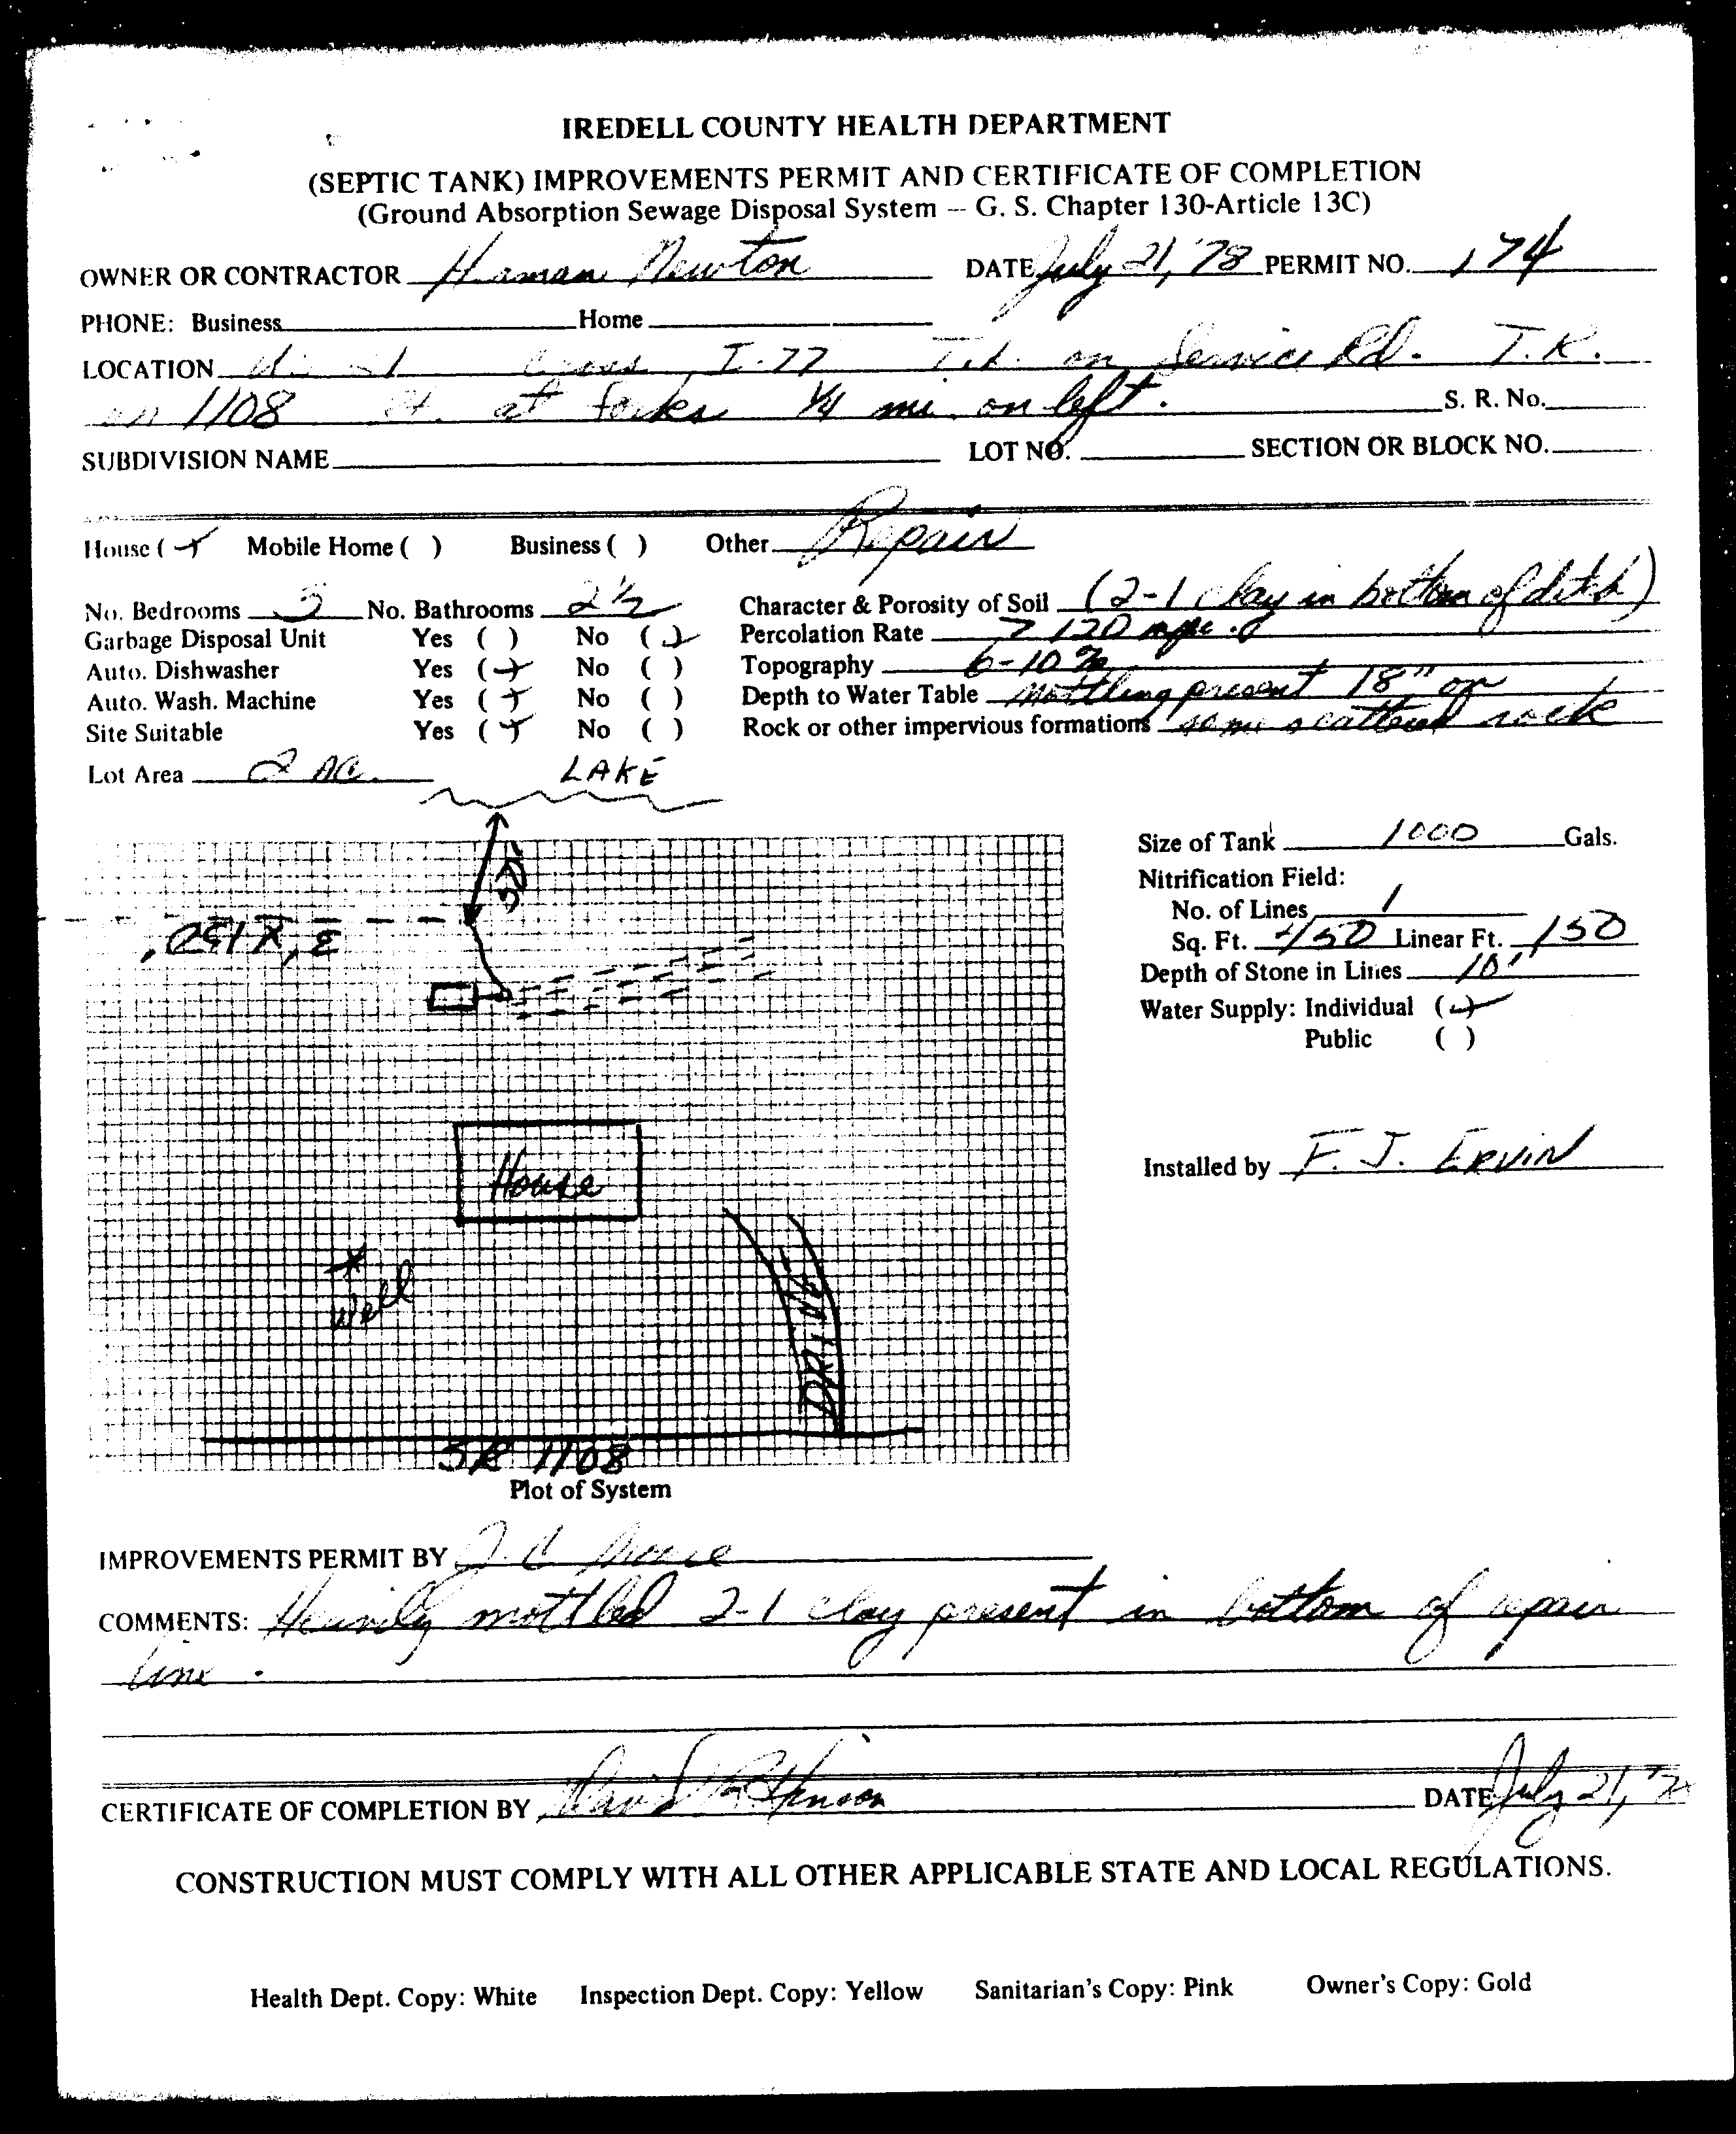 IREDELL COUNTY HEALTH DEPARTMENT
(SEPTIC TANK) IMPROVEMENTS PERMIT AND CERTIFICATE OF COMPLETION
(Ground Absorption Sewage Disposal System -- G. S. Chapter 130-Article 13C)
OWNER OR CONTRACTOR Newton DATE July 21, '78 PERMIT NO. 174
PHONE: Business Home
LOCATION I-77 on Service Rd. T.R.
on 1108 at forks 1/4 mi. on left. S. R. No.
SUBDIVISION NAME LOT NO. SECTION OR BLOCK NO.
House ( ) Mobile Home ( ) Business ( ) Other Repair
No. Bedrooms 3 No. Bathrooms 2 1/2 Character & Porosity of Soil (2-1 clay in bottom of ditch)
Garbage Disposal Unit Yes ( ) No ( ) Percolation Rate > 120 mpi.
Auto. Dishwasher Yes ( ) No ( ) Topography 6-10%
Auto. Wash. Machine Yes ( ) No ( ) Depth to Water Table mottling present 18" or
Site Suitable Yes ( ) No ( ) Rock or other impervious formations some scattered rock
Lot Area 2 AC. LAKE
Size of Tank 1000 Gals.
Nitrification Field:
50'
No. of Lines 1
3' X 150'
Sq. Ft. 450 Linear Ft. 150
Depth of Stone in Lines 10"
Water Supply: Individual ( )
Public ( )
House
Installed by F. J. ERVIN
Well
SR 1108
Plot of System
IMPROVEMENTS PERMIT BY
COMMENTS: Heavily mottled 2-1 clay present in bottom of repair
line.
CERTIFICATE OF COMPLETION BY David DATE July 21, '78
CONSTRUCTION MUST COMPLY WITH ALL OTHER APPLICABLE STATE AND LOCAL REGULATIONS.
Health Dept. Copy: White Inspection Dept. Copy: Yellow Sanitarian's Copy: Pink Owner's Copy: Gold